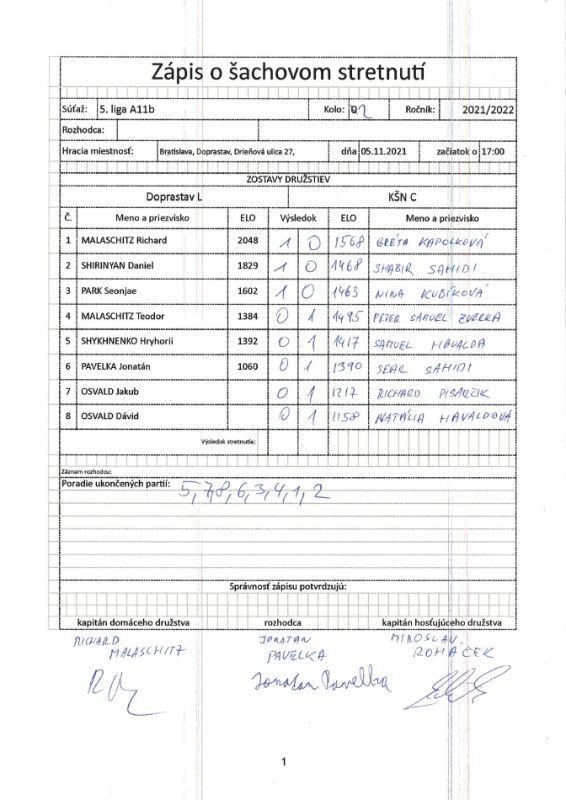 Zápis o šachovom stretnutí
Súťaž: 5. liga A11b Kolo: Ročník: 2021/2022
Rozhodca:
Hracia miestnosť: Bratislava, Doprastav, Drieňová ulica 27, dňa 05.11.2021 začiatok o 17:00
ZOSTAVY DRUŽSTIEV
Doprastav L KŠN C
Č. Meno a priezvisko ELO Výsledok ELO Meno a priezvisko
1 MALASCHITZ Richard 2048 1 0 1568 GRÉTA KAPOLKOVÁ
2 SHIRINYAN Daniel 1829 1 0 1468 SHABIR SAHIDI
3 PARK Seonjae 1602 1 0 1463 NINA KUBÍKOVÁ
4 MALASCHITZ Teodor 1384 0 1 1495 PETER SAMUEL
5 SHYKHNENKO Hryhorii 1392 0 1 1417 SAMUEL HAVALDA
6 PAVELKA Jonatán 1060 0 1 1390 SEAR SAHIDI
7 OSVALD Jakub 0 1 1217 RICHARD PISARČIK
8 OSVALD Dávid 0 1 1158 NATÁLIA HAVALDOVÁ
Výsledok stretnutie:
Záznam rozhodcu:
Poradie ukončených partií: 5,7,8,6,3,4,1,2
Správnosť zápisu potvrdzujú:
kapitán domáceho družstva rozhodca kapitán hosťujúceho družstva
RICHARD JONATAN MIROSLAV
MALASCHITZ PAVELKA ROHÁČEK
Jonatan Pavelka
1